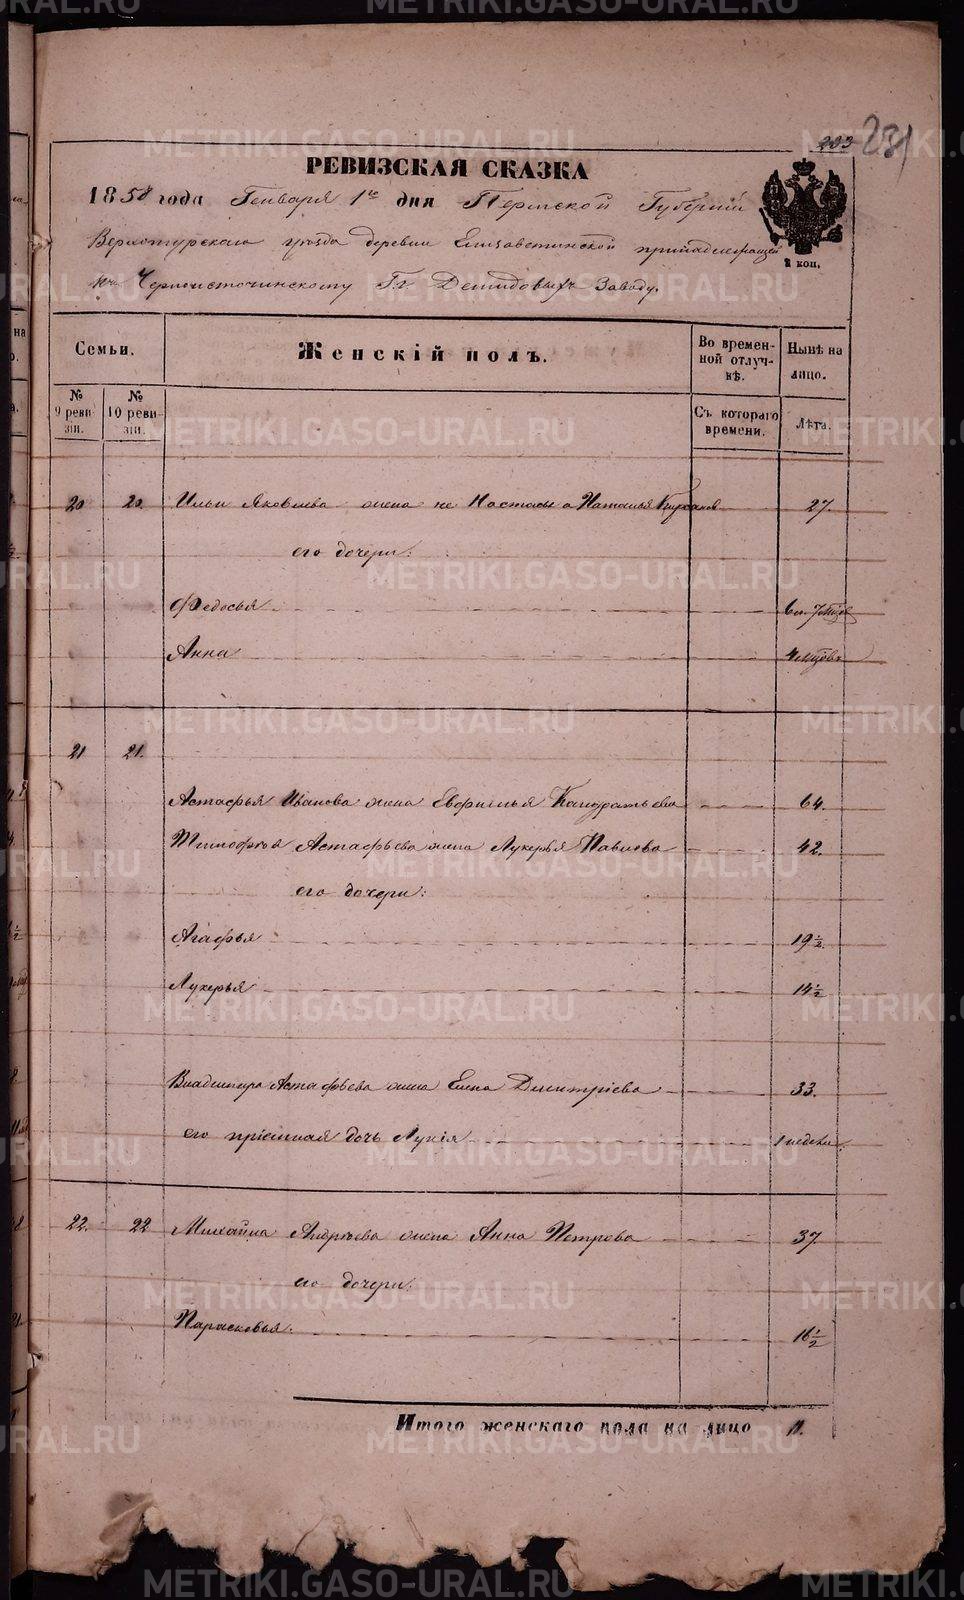 283 281
РЕВИЗСКАЯ СКАЗКА
1858 года Генваря 1го дня Пермской Губернии
Верхотурскаго уезда деревни Елизаветинской принадлежащей
къ Черноисточинскому Гг Демидовыхъ Заводу.
2 коп.
Семьи. Женскій полъ. Во временной отлучкѣ. Нынѣ на лицо.
№ 9 ревизіи. № 10 ревизіи. Съ котораго времени. Лѣта.
20 20. Ильи Яковлева жена не Настасья а Наталья 27.
его дочери:
Федосья 6 л. 7 мцов
Анна 4 мцовъ
21 21.
Астафья Иванова жена Евфимья Кондратьева 64.
Тимофея Астафьева жена Лукерья Павлова 42.
его дочери:
Агафья 19 1/2.
Лукерья 14 1/2
Владимира Астафьева жена Елена Дмитріева 33.
его пріемная дочь Лукія 1 недели.
22. 22 Михайла Андреева жена Анна Петрова 37.
его дочери:
Парасковья. 16 1/2
Итого женскаго пола на лицо 11.
METRIKI.GASO-URAL.RU